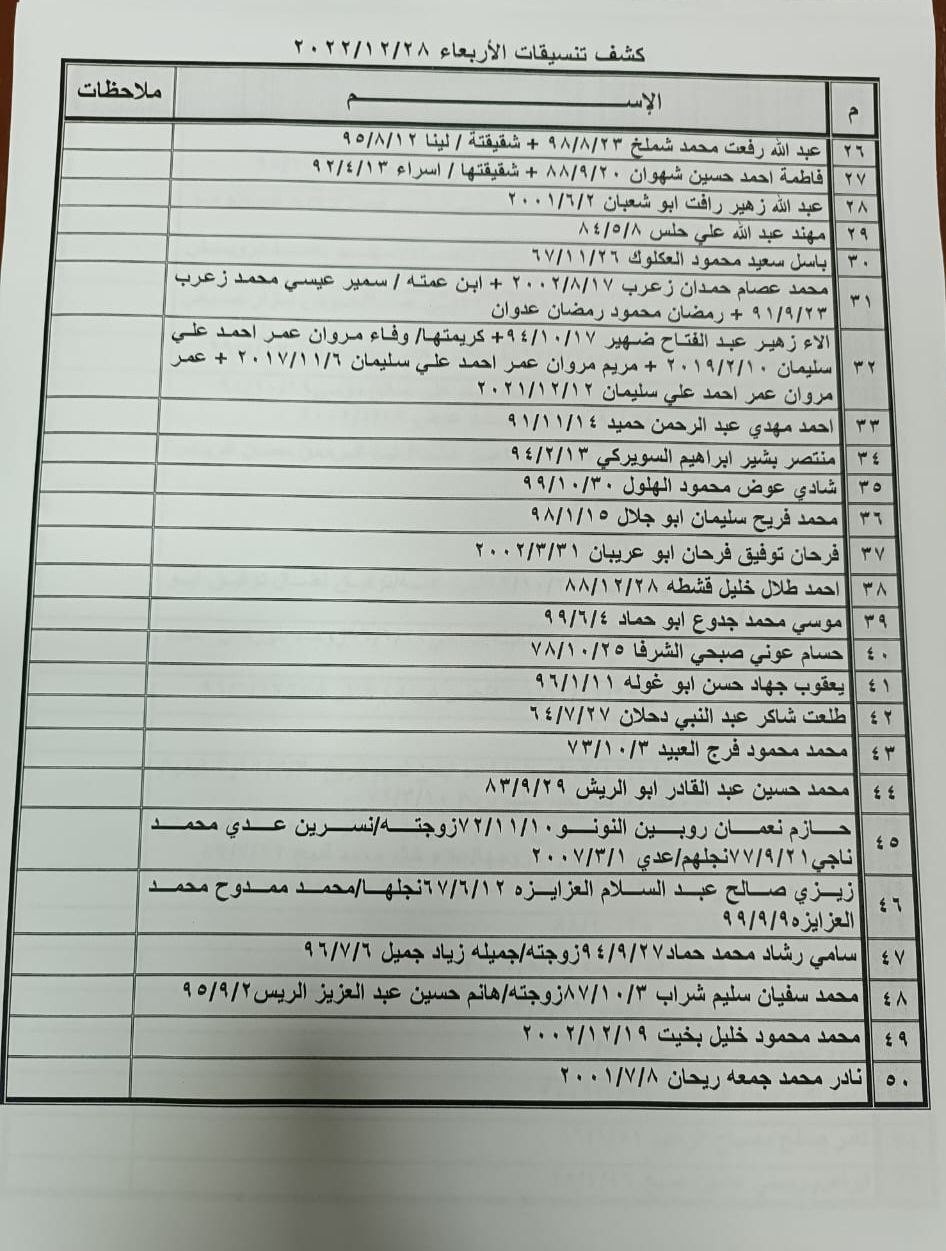 كشف تنسيقات الأربعاء ٢٠٢٢/١٢/٢٨
م الإســـــــــــــــــــــم ملاحظات
٢٦ عبد الله رفعت محمد شملخ ٩٨/٨/٢٣ + شقيقتة / لينا ٩٥/٨/١٢
٢٧ فاطمة احمد حسين شهوان ٨٨/٩/٢٠ + شقيقتها / اسراء ٩٢/٤/١٣
٢٨ عبد الله زهير رافت ابو شعبان ٢٠٠١/٦/٢
٢٩ مهند عبد الله علي حلس ٨٤/٥/٨
٣٠ باسل سعيد محمود العكلوك ٦٧/١١/٢٦
٣١ محمد عصام حمدان زعرب ٢٠٠٢/٨/١٧ + ابن عمته / سمير عيسي محمد زعرب
٩١/٩/٢٣ + رمضان محمود رمضان عدوان
الاء زهير عبد الفتاح ضهير ٩٤/١٠/١٧+ كريمتها/ وفاء مروان عمر احمد علي
٣٢ سليمان ٢٠١٩/٢/١٠ + مريم مروان عمر احمد علي سليمان ٢٠١٧/١١/٦ + عمر
مروان عمر احمد علي سليمان ٢٠٢١/١٢/١٢
٣٣ احمد مهدي عبد الرحمن حميد ٩١/١١/١٤
٣٤ منتصر بشير ابراهيم السويركي ٩٤/٢/١٣
٣٥ شادي عوض محمود الهلول ٩٩/١٠/٣٠
٣٦ محمد فريح سليمان ابو جلال ٩٨/١/١٥
٣٧ فرحان توفيق فرحان ابو عريبان ٢٠٠٢/٣/٣١
٣٨ احمد طلال خليل قشطه ٨٨/١٢/٢٨
٣٩ موسي محمد جدوع ابو حماد ٩٩/٦/٤
٤٠ حسام عوني صبحي الشرفا ٧٨/١٠/٢٥
٤١ يعقوب جهاد حسن ابو غوله ٩٦/١/١١
٤٢ طلعت شاكر عبد النبي دحلان ٦٤/٧/٢٧
٤٣ محمد محمود فرج العبيد ٧٣/١٠/٣
٤٤ محمد حسين عبد القادر ابو الريش ٨٣/٩/٢٩
٤٥ حـــازم نعمـــان روبـــين النونـــو٧٢/١١/١٠زوجتـــه/نســـرين عـــدي محمـــد
ناجي٧٧/٩/٢١نجلهم/عدي ٢٠٠٧/٣/١
٤٦ زيـزي صـالح عبـد السـلام العزايـزه ٦٧/٦/١٢نجلهـا/محمـد ممـدوح محمـد
العزايزه٩٩/٩/٩
٤٧ سامي رشاد محمد حماد٩٤/٩/٢٧زوجته/جميله زياد جميل ٩٦/٧/٦
٤٨ محمد سفيان سليم شراب ٨٧/١٠/٣زوجته/هانم حسين عبد العزيز الريس٩٥/٩/٢
٤٩ محمد محمود خليل بخيت ٢٠٠٢/١٢/١٩
٥٠ نادر محمد جمعه ريحان ٢٠٠١/٧/٨